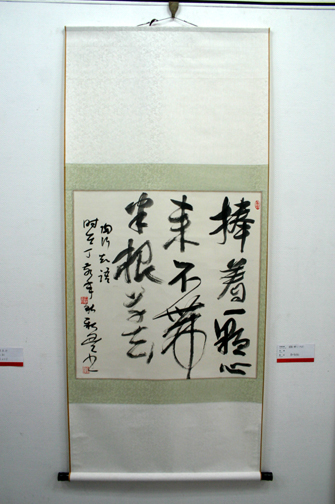 捧着一颗心
来不带
半根草去
陶行知语
时在丁亥年秋